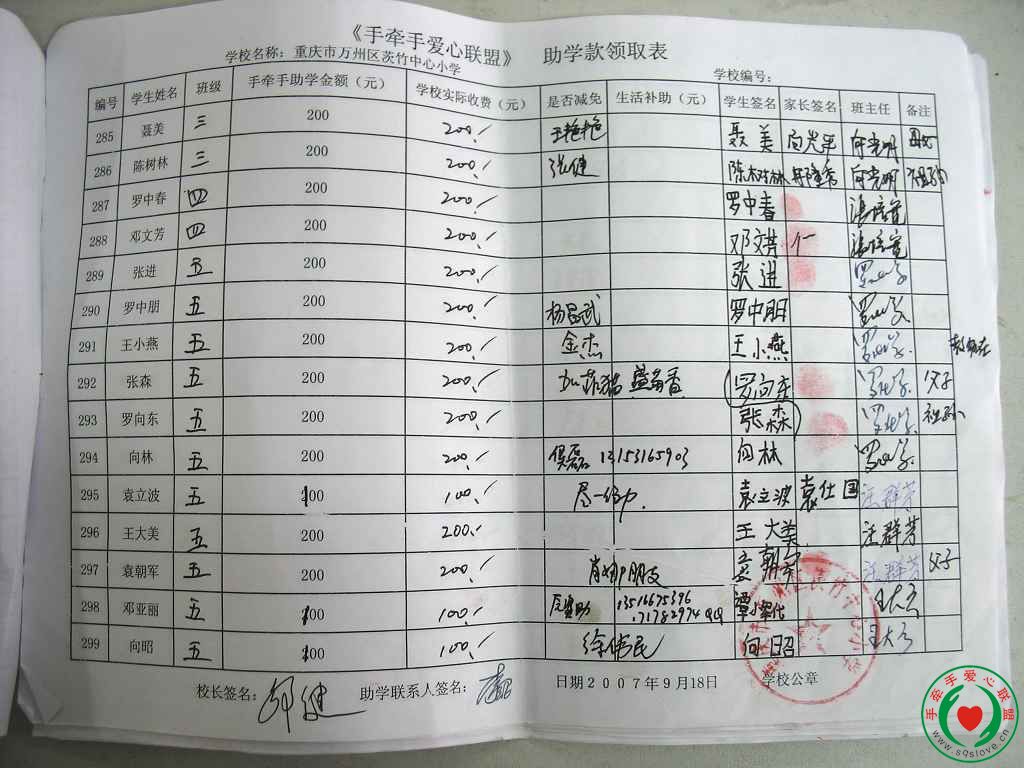 《手牵手爱心联盟》 助学款领取表
学校名称：重庆市万州区茨竹中心小学 学校编号：
编号 学生姓名 班级 手牵手助学金额（元） 学校实际收费（元） 是否减免 生活补助（元） 学生签名 家长签名 班主任 备注
285 聂美 三 200 200./ 王艳艳 聂美 向光平 向光明
286 陈树林 三 200 200./ 张健 陈树林 向光明 祖孙
287 罗中春 四 200 200./ 罗中春
288 邓文芳 四 200 200./ 邓文芳
289 张进 五 200 200./ 张进
290 罗中朋 五 200 200./ 杨昌武 罗中朋
291 王小燕 五 200 200./ 金杰 王小燕
292 张森 五 200 200./ 加菲猫 罗向东 父子
293 罗向东 五 200 200./ 张森 祖孙
294 向林 五 200 200./ 侯磊 13153165903 向林
295 袁立波 五 100 100./ 尽一份力 袁立波 袁仕国 汪群芳
296 王大美 五 200 200./ 王大美 汪群芳
297 袁朝军 五 200 200./ 袁朝军 汪群芳 父子
298 邓亚丽 五 100 100./ 13516675396
71782974 QQ
299 向昭 五 100 100./ 徐伟民 向昭
校长签名： 助学联系人签名： 日期2007年9月18日 学校公章
手牵手爱心联盟
www.sqslove.cn